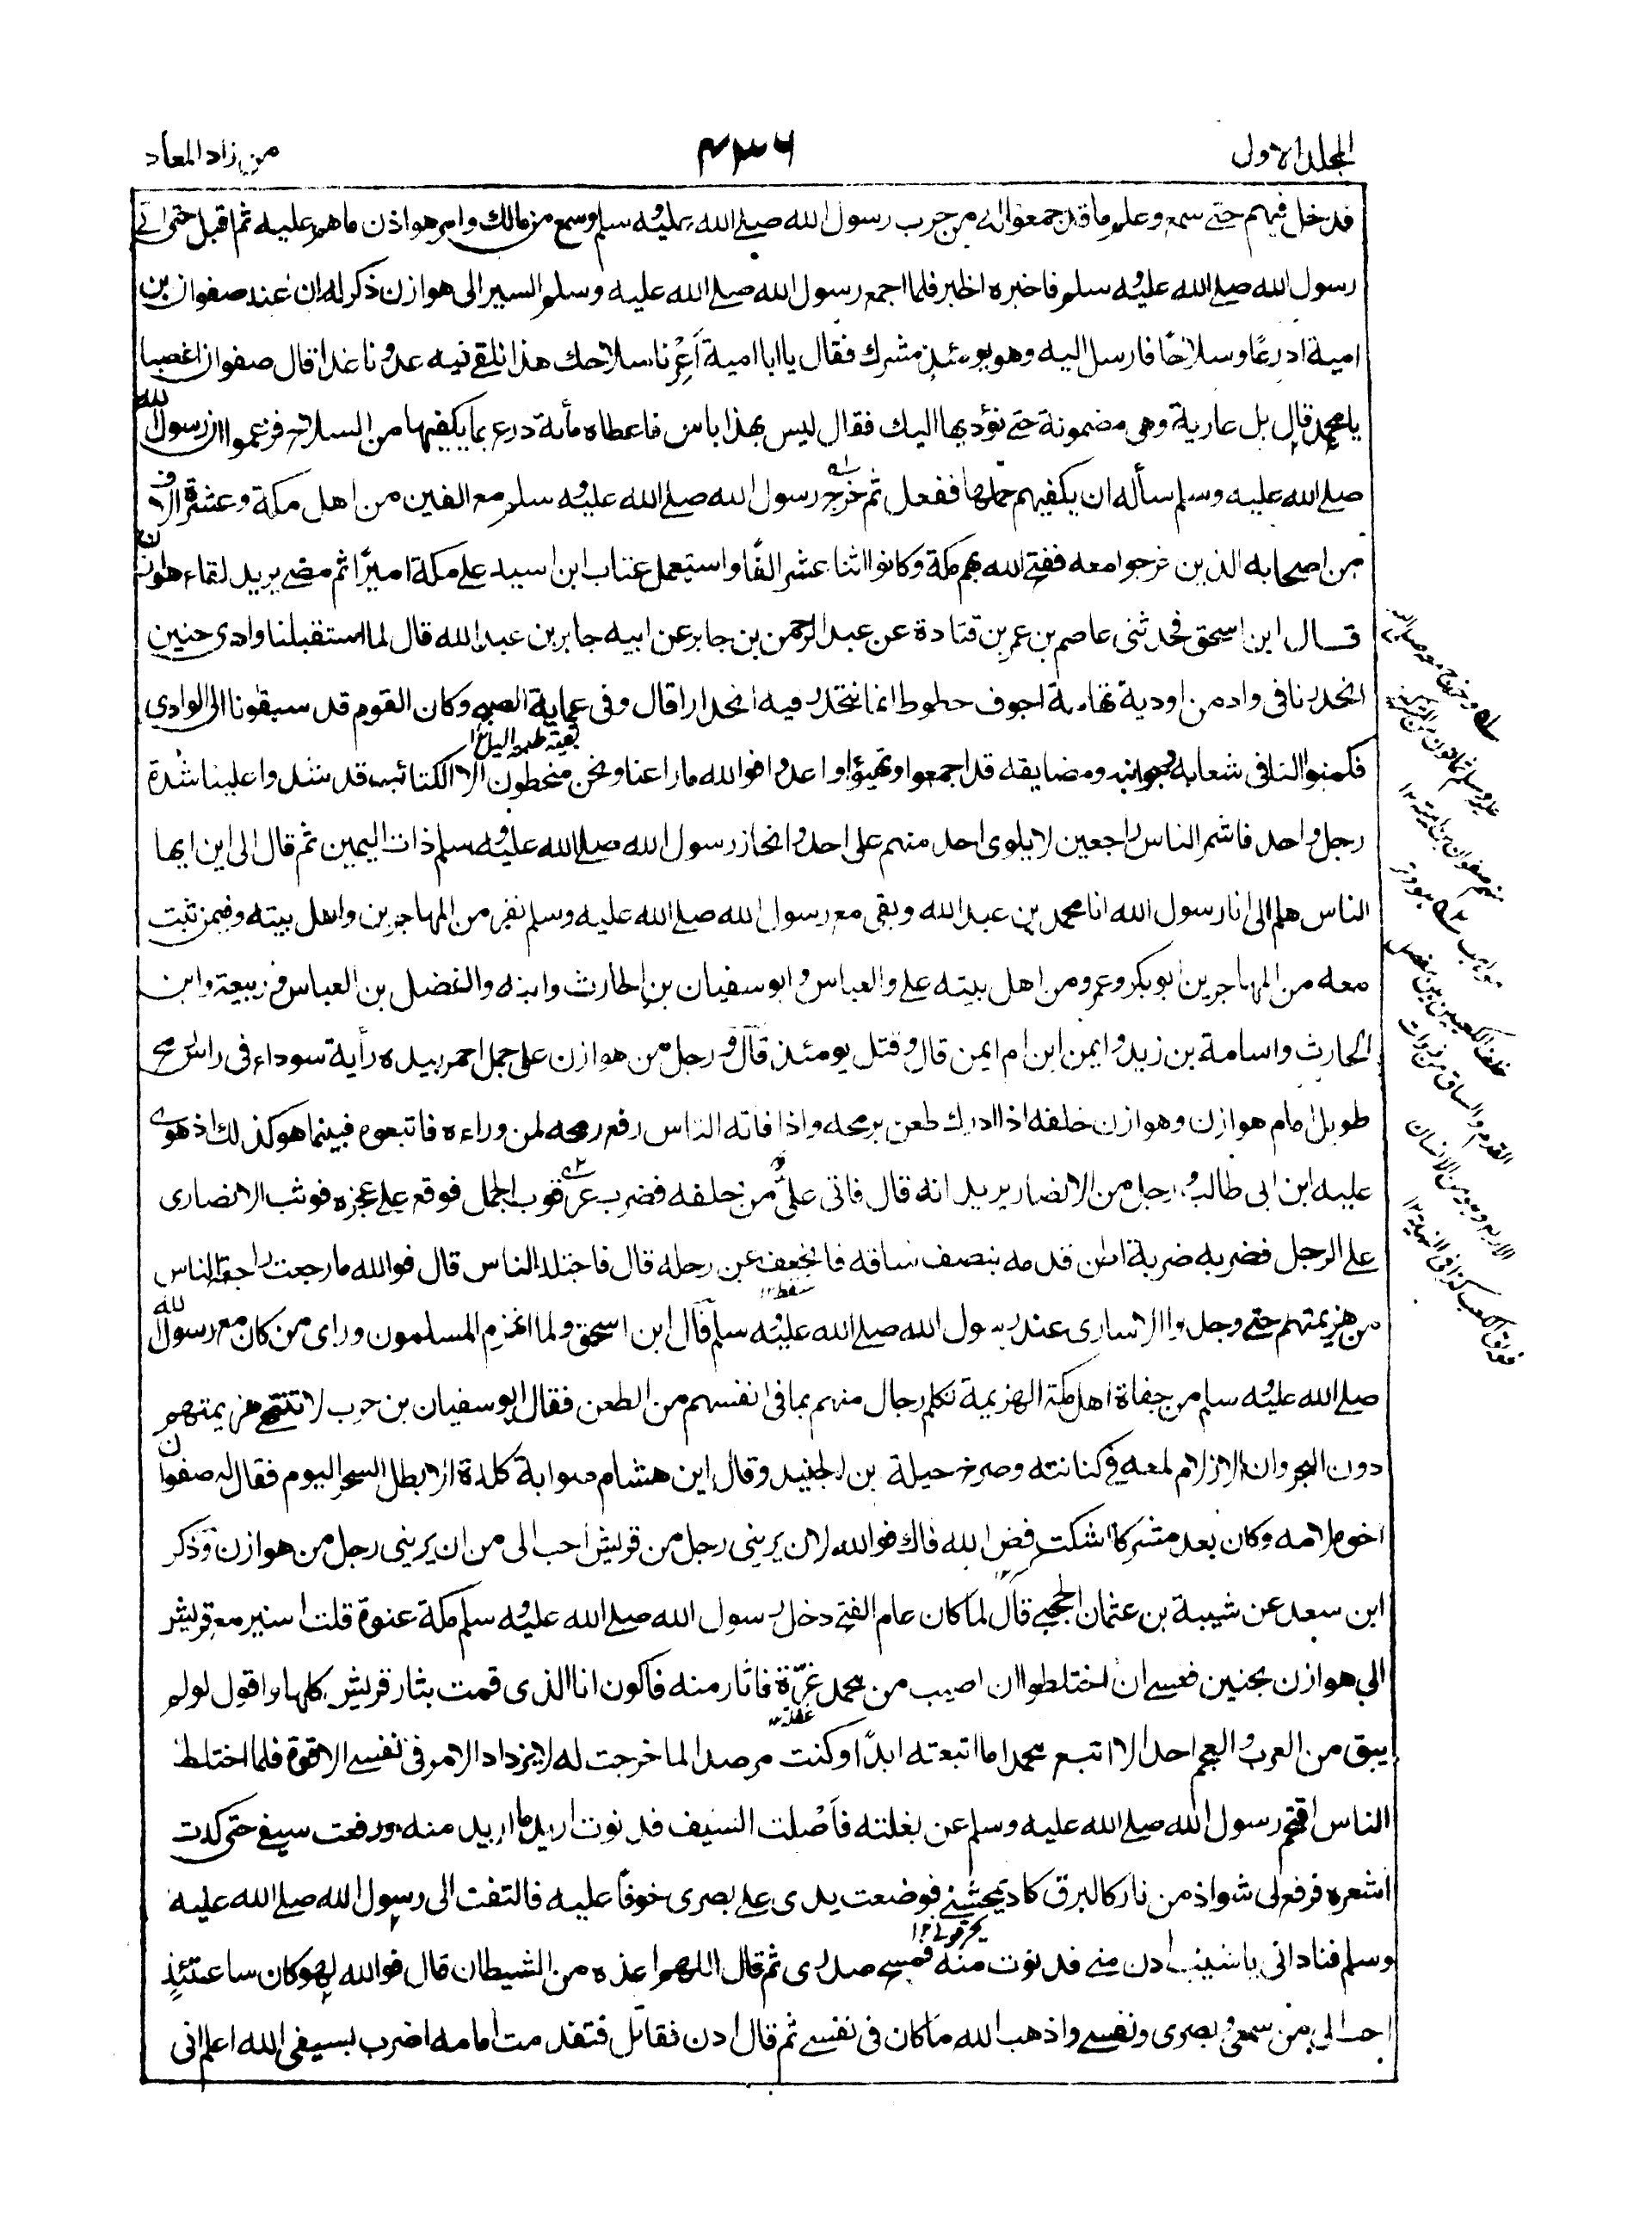 المجلد الاول
۴۳۶
من زاد المعاد
فدخل فيهم حتى سمع وعلم ما قد جمعوا له من حرب رسول الله صلى الله عليه وسلم وسمع من مالك وامر هوازن ما هم عليه ثم اقبل حتى اتى
رسول الله صلى الله عليه وسلم فاخبره الخبر فلما اجمع رسول الله صلى الله عليه وسلم السير الى هوازن ذكر له ان عند صفوان بن
امية ادرعًا وسلاحًا فارسل اليه وهو يومئذ مشرك فقال يا ابا امية أَعِرْنا سلاحك هذا نلقى فيه عدونا غدا فقال صفوان اغصبا
يا محمد قال بل عارية وهى مضمونة حتى نؤديها اليك فقال ليس بهذا باس فاعطاه مأئة درع بما يكفيها من السلاح فزعموا ان رسول الله
صلى الله عليه وسلم سأله ان يكفيهم حملها ففعل ثم خرج رسول الله صلى الله عليه وسلم معه الفين من اهل مكة وعشرة الاف
من اصحابه الذين خرجوا معه ففتح الله بهم مكة وكانوا اثنا عشر الفًا واستعمل عتاب ابن اسيد على مكة اميرًا ثم مضى يريد لقاء هوازن
قال ابن اسحق فحدثنى عاصم بن عمر بن قتادة عن عبد الرحمن بن جابر عن ابيه جابر بن عبد الله قال لما استقبلنا وادى حنين
انحدرنا فى واد من اودية تهامة اجوف حطوط انما ننحدر فيه انحدارا قال وفى عماية الصبح وكان القوم قد سبقونا الى الوادى
بقية ظلمة الليل ١٢
فكمنوا لنا فى شعابه وجوانبه ومضايقه قد اجمعوا وتهيؤا واعدوا فوالله ما راعنا ونحن منحطون الا الكتائب قد شدوا علينا شدة
رجل واحد فانشمر الناس راجعين لا يلوى احد منهم على احد وانحاز رسول الله صلى الله عليه وسلم ذات اليمين ثم قال الى اين ايها
الناس هلم الى انا رسول الله انا محمد بن عبد الله وبقى مع رسول الله صلى الله عليه وسلم نفر من المهاجرين واهل بيته وفيمن ثبت
معه من المهاجرين ابو بكر وعمر ومن اهل بيته على والعباس وابو سفيان بن الحارث وابنه والفضل بن العباس وربيعة وابن
الحارث واسامة بن زيد وايمن ابن ام ايمن قال وقتل يومئذ قال ورجل من هوازن على جمل احمر بيده رأية سوداء فى راس رمح
طويل امام هوازن وهوازن خلفه اذا ادرك طعن برمحه واذا فاته الناس رفع رمحه لمن وراءه فاتبعوه فبينما هو كذلك اذ هوى
عليه ابن ابى طالب ورجل من الانصار يريد انه قال فاتى علىٌّ من خلفه فضرب عرقوب الجمل فوقع على عجزه فوثب الانصارى
على الرجل فضربه ضربة اطن قدمه بنصف ساقه فانجعف عن رحله قال فاجتلد الناس قال فوالله ما رجعت راجعة الناس
سقط ١٢
من هزيمتهم حتى وجدوا الاسارى عند رسول الله صلى الله عليه وسلم قال ابن اسحق ولما انهزم المسلمون وراى من كان مع رسول الله
صلى الله عليه وسلم من جفاة اهل مكة الهزيمة تكلم رجال منهم بما فى انفسهم من الطعن فقال ابو سفيان بن حرب لا تنتهى هزيمتهم
دون البحر وان الازلام لمعه فى كنانته وصرخ جبلة بن الجنيد وقال ابن هشام صوابة كلدة الا بطل السحر اليوم فقال له صفوان
اخوه لامه وكان بعد مشركا اسكت فض الله فاك فوالله لان يربنى رجل من قريش احب الى من ان يربنى رجل من هوازن وذكر
ابن سعد عن شيبة بن عثمان الحجبى قال لما كان عام الفتح دخل رسول الله صلى الله عليه وسلم مكة عنوة قلت اسير مع قريش
الى هوازن بحنين فعسى ان اختلطوا ان اصيب من محمد غرّة فاثار منه فاكون انا الذى قمت بثار قريش كلها واقول لو لم
غفلة ١٢
يبق من العرب والعجم احد الا اتبع محمدا ما اتبعته ابدًا وكنت مرصدا لما خرجت له لا يزداد الامر فى نفسى الا قوة فلما اختلط
الناس اقتحم رسول الله صلى الله عليه وسلم عن بغلته فأصلت السيف فدنوت اريد ما اريد منه ورفعت سيفى حتى كدت
اشعره فرفع لى شواذ من نار كالبرق كاد يمحشنى فوضعت يدى على بصرى خوفًا عليه فالتفت الى رسول الله صلى الله عليه
يحرقونى ١٢
وسلم فنادانى يا شيب ادن منى فدنوت منه فمسح صدرى ثم قال اللهم اعذه من الشيطان قال فوالله لهو كان ساعتئذٍ
احب الى من سمعى وبصرى ونفسى واذهب الله ما كان فى نفسى ثم قال ادن فقاتل فتقدمت امامه اضرب بسيفى الله اعلم انى
خلف الكعبين بين مفصل
القدم والساق من ذوات
الاربع ومن الانسان
فويق العقب كذا فى النهاية ١٢